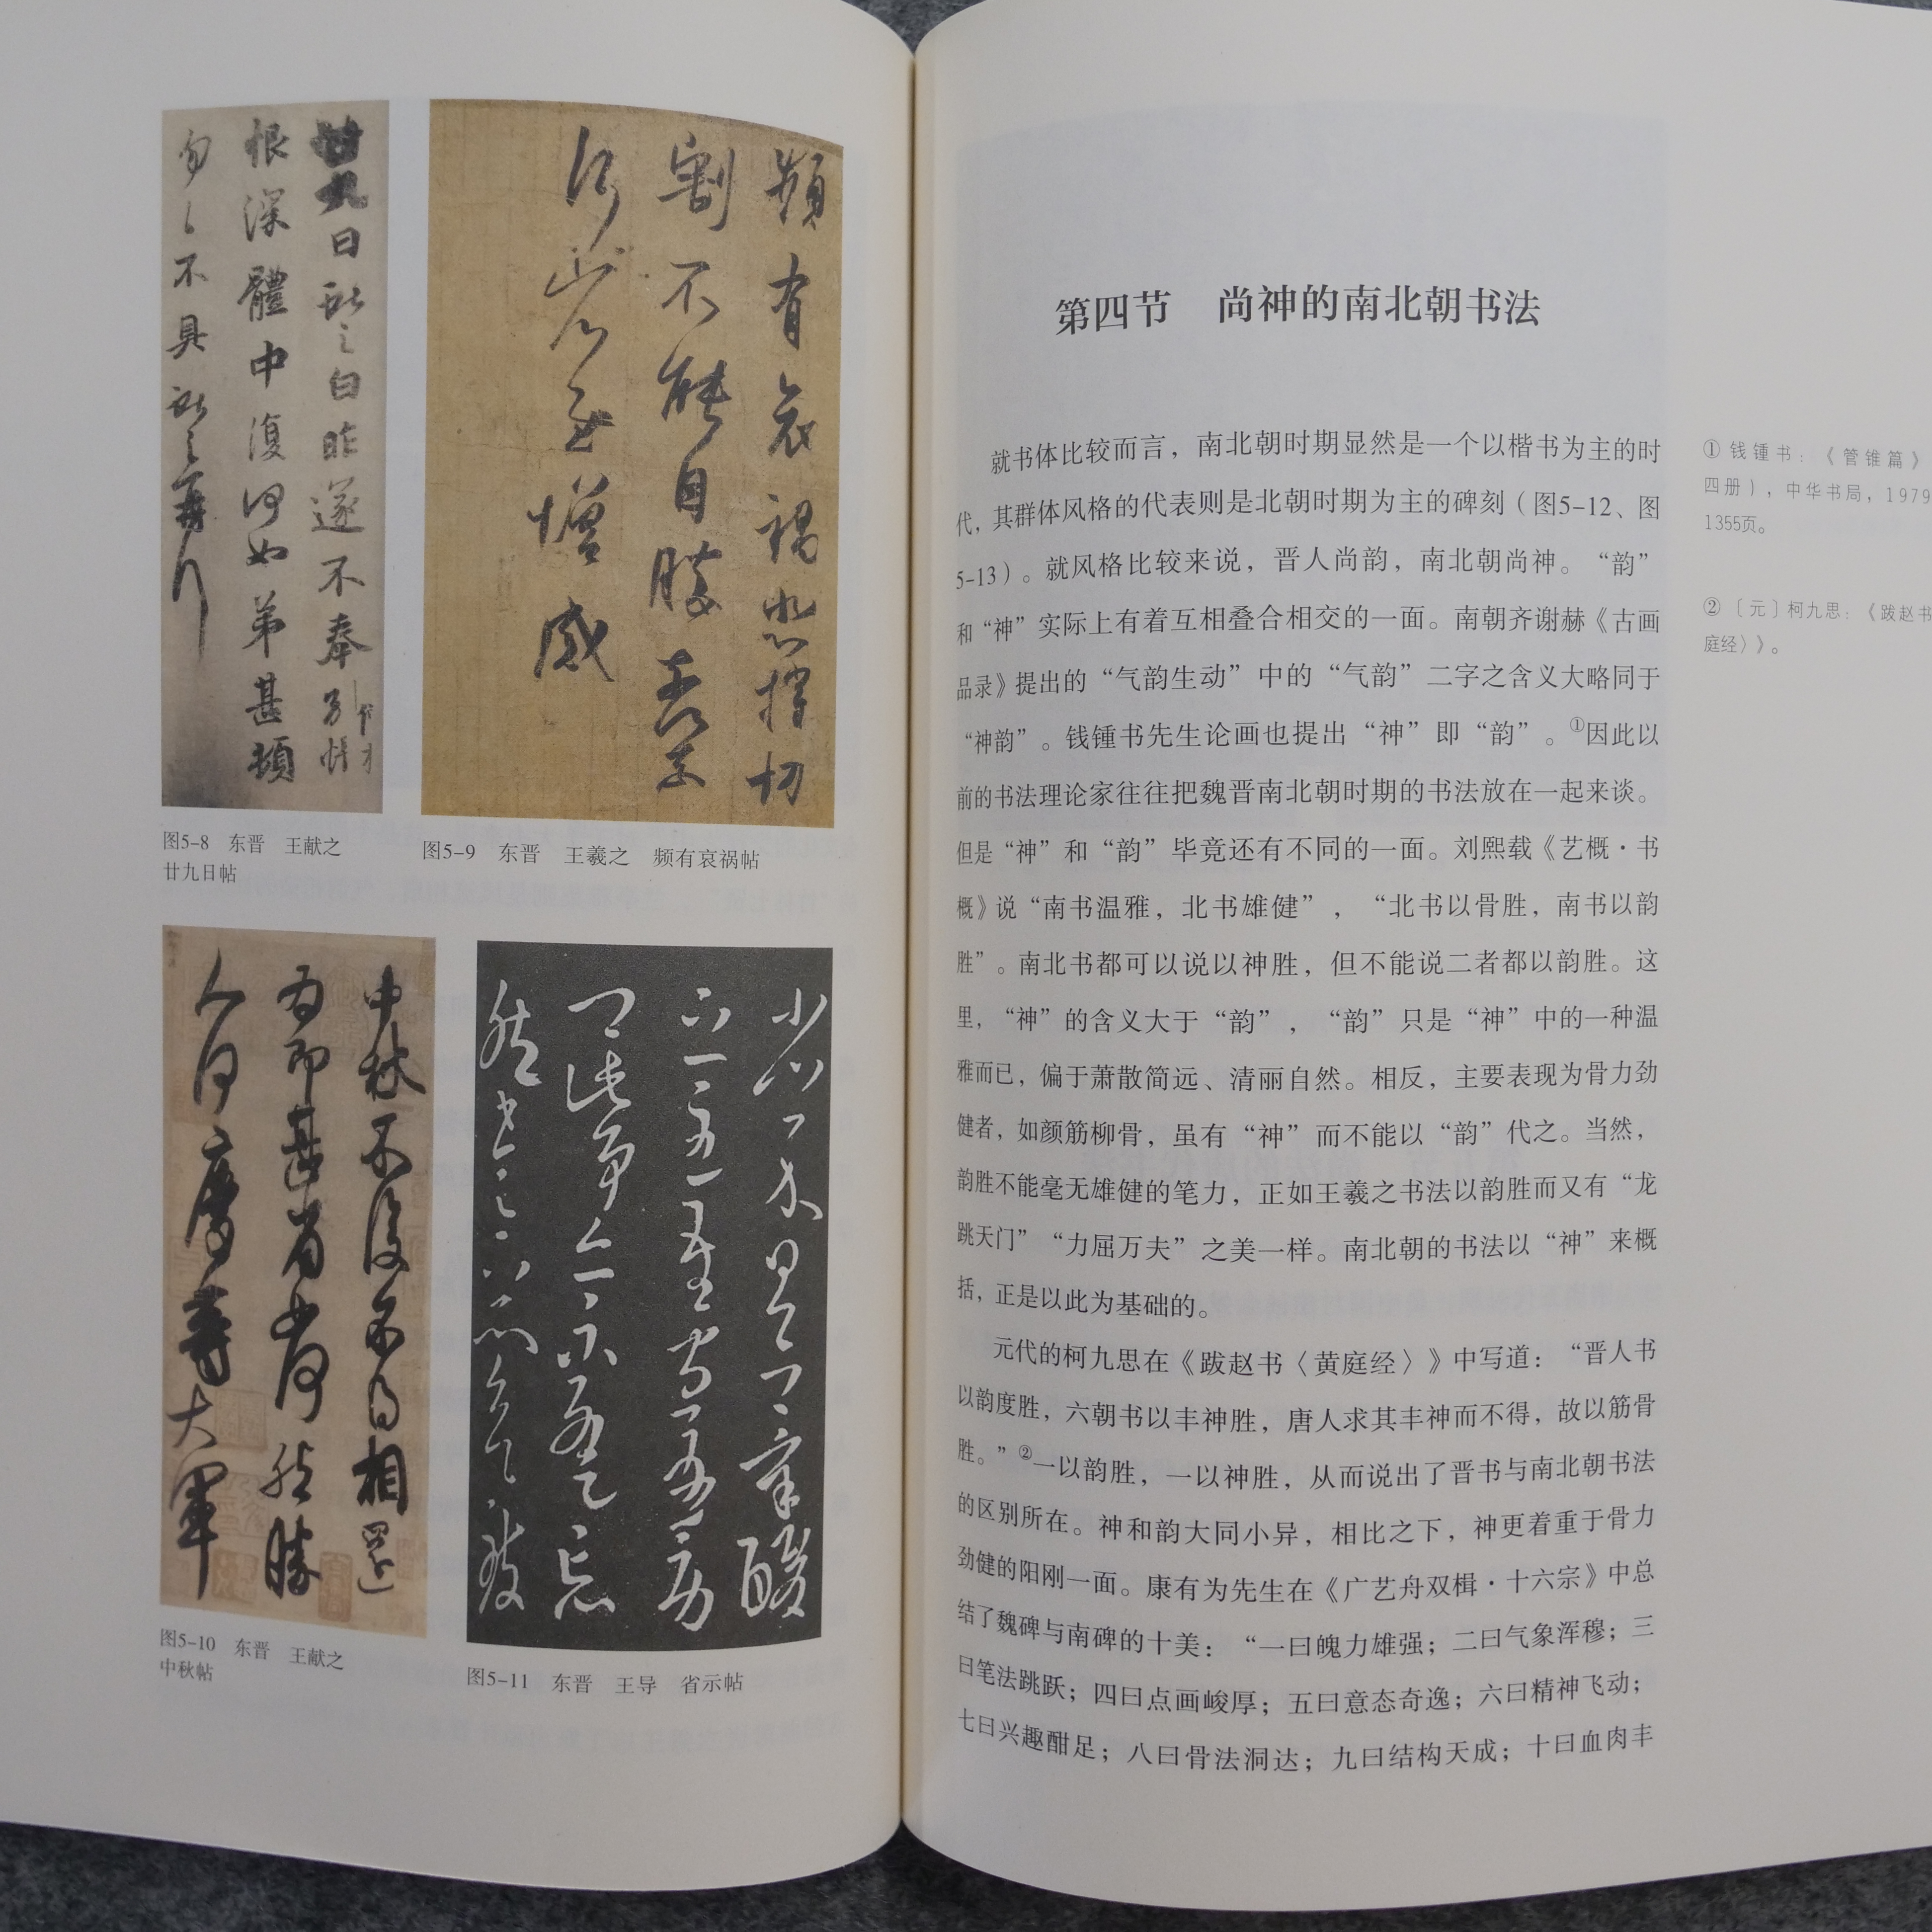 廿九日獻之白昨遂不奉別悵
恨深體中復何如弟甚頓
匆匆不具獻之再拜
图5-8 东晋 王献之
廿九日帖
頻有哀禍悲摧切
割不能自勝奈何奈
何省慰增感
图5-9 东晋 王羲之 频有哀祸帖
中秋不復不得相還
為即甚省如何然勝
人何慶等大軍
图5-10 东晋 王献之
中秋帖
图5-11 东晋 王导 省示帖
第四节 尚神的南北朝书法
就书体比较而言，南北朝时期显然是一个以楷书为主的时
代，其群体风格的代表则是北朝时期为主的碑刻（图5-12、图
5-13）。就风格比较来说，晋人尚韵，南北朝尚神。“韵”
和“神”实际上有着互相叠合相交的一面。南朝齐谢赫《古画
品录》提出的“气韵生动”中的“气韵”二字之含义大略同于
“神韵”。钱锺书先生论画也提出“神”即“韵”。①因此以
前的书法理论家往往把魏晋南北朝时期的书法放在一起来谈。
但是“神”和“韵”毕竟还有不同的一面。刘熙载《艺概·书
概》说“南书温雅，北书雄健”，“北书以骨胜，南书以韵
胜”。南北书都可以说以神胜，但不能说二者都以韵胜。这
里，“神”的含义大于“韵”，“韵”只是“神”中的一种温
雅而已，偏于萧散简远、清丽自然。相反，主要表现为骨力劲
健者，如颜筋柳骨，虽有“神”而不能以“韵”代之。当然，
韵胜不能毫无雄健的笔力，正如王羲之书法以韵胜而又有“龙
跳天门”“力屈万夫”之美一样。南北朝的书法以“神”来概
括，正是以此为基础的。
元代的柯九思在《跋赵书〈黄庭经〉》中写道：“晋人书
以韵度胜，六朝书以丰神胜，唐人求其丰神而不得，故以筋骨
胜。”②一以韵胜，一以神胜，从而说出了晋书与南北朝书法
的区别所在。神和韵大同小异，相比之下，神更着重于骨力
劲健的阳刚一面。康有为先生在《广艺舟双楫·十六宗》中总
结了魏碑与南碑的十美：“一曰魄力雄强；二曰气象浑穆；三
曰笔法跳跃；四曰点画峻厚；五曰意态奇逸；六曰精神飞动；
七曰兴趣酣足；八曰骨法洞达；九曰结构天成；十曰血肉丰
① 钱锺书：《管锥篇》
四册），中华书局，1979
1355页。
② 〔元〕柯九思：《跋赵书
庭经〉》。